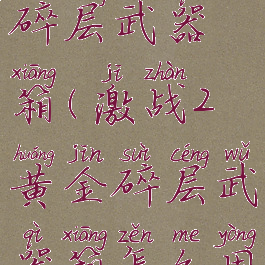 碎层武器
xiāng jī zhàn
箱(激战2
huáng jīn suì céng wǔ
黄金碎层武
qì xiāng zěn me yòng
器箱怎么用